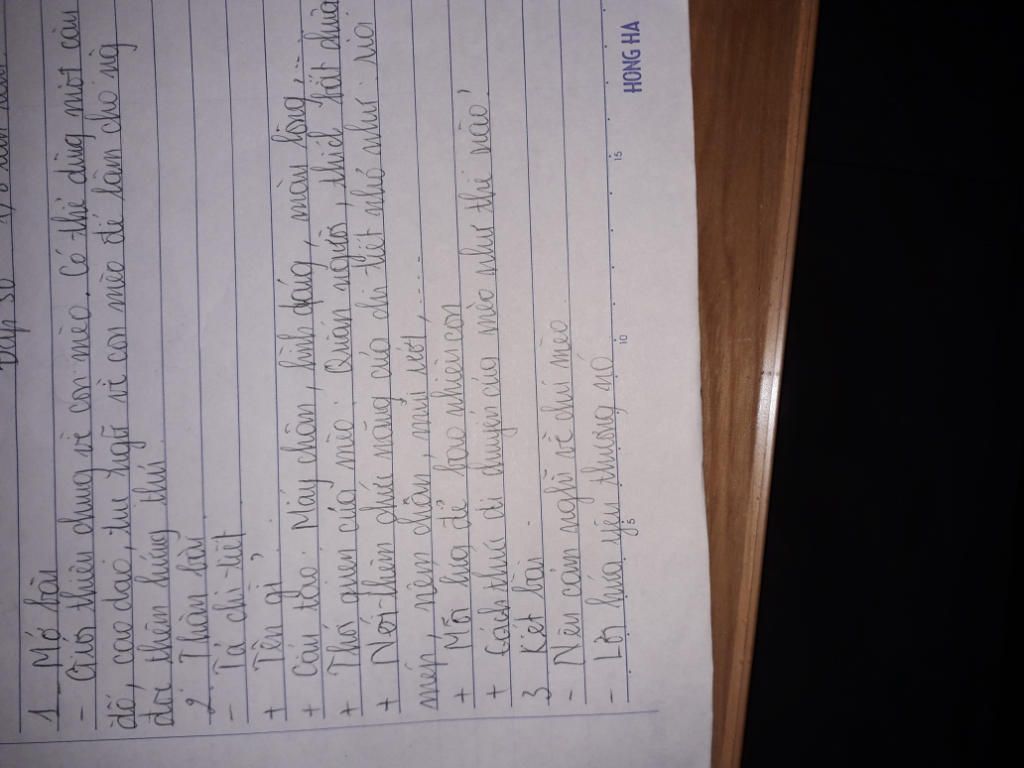 1. Mở bài
- Giới thiệu chung về con mèo. Có thể dùng một câu
đố, cao dao, tục ngữ về con mèo để làm cho ng
đọc thêm hứng thú
2. Thân bài
- Tả chi tiết
+ Tên gì?
+ Cấu tạo: Mấy chân, hình dáng, màu lông,...
+ Thói quen của mèo: Quấn người, thích bắt chuột
+ Nói thêm chức năng của chi tiết nhỏ như: râu
mép, nệm chân, mũi ướt,....
+ Mỗi lứa đẻ bao nhiêu con
+ Cách thức di chuyển của mèo như thế nào?
3. Kết bài
- Nêu cảm nghĩ về chú mèo
- Lời hứa yêu thương nó
5 10 15
HONG HA